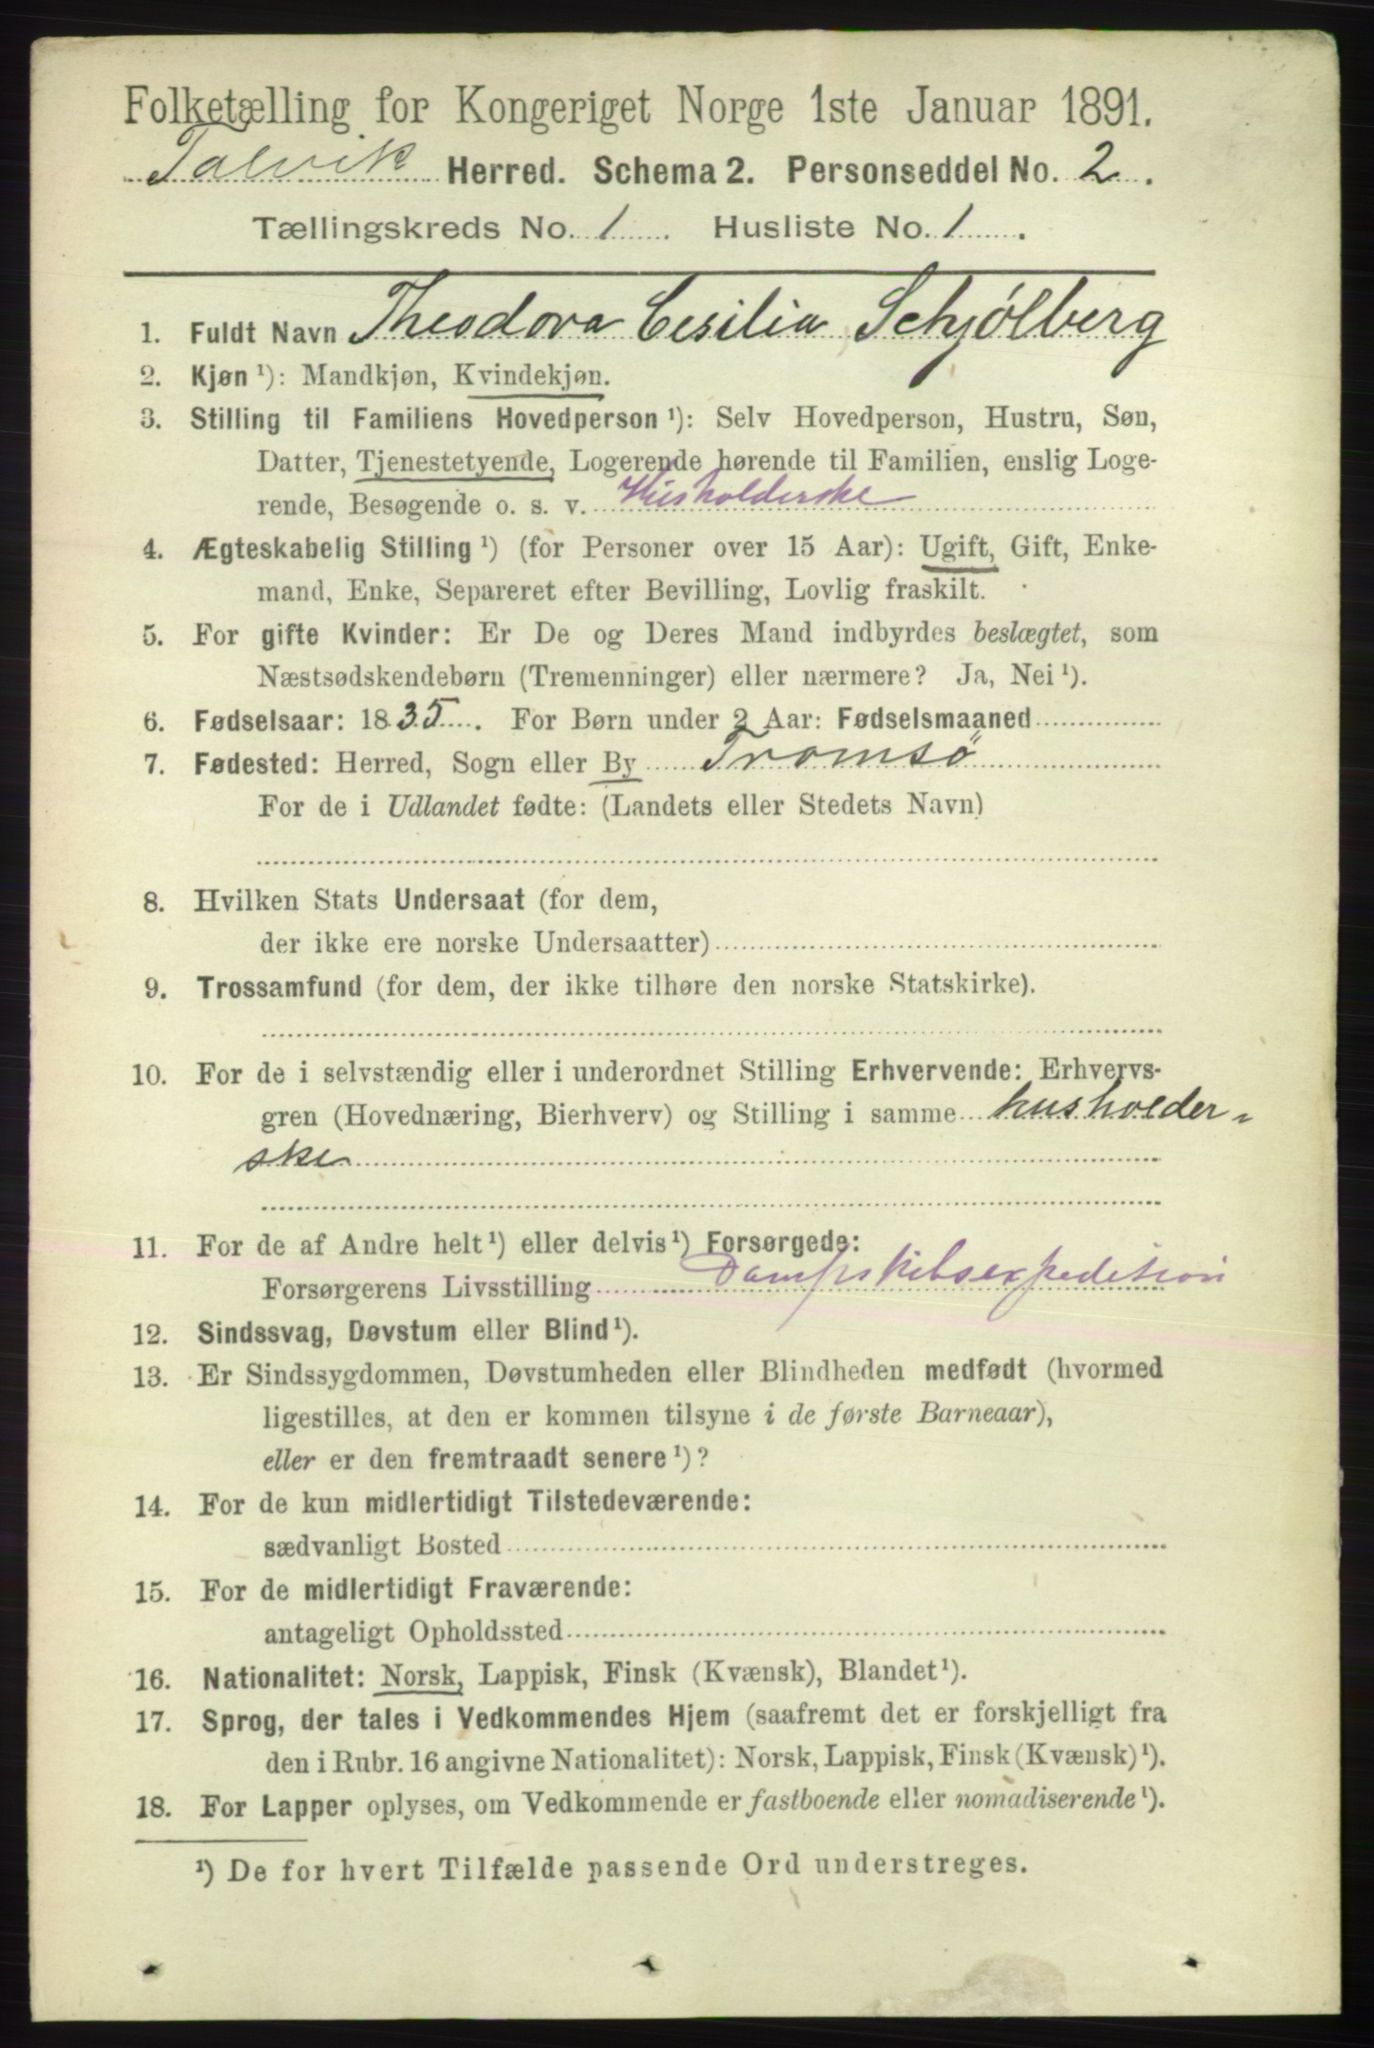 Folketælling for Kongeriget Norge 1ste Januar 1891.
Talvik Herred. Schema 2. Personseddel No. 2.
Tællingskreds No. 1. Husliste No. 1.
1. Fuldt Navn Theodora Cesilia Schjølberg
2. Kjøn ¹): Mandkjøn, Kvindekjøn.
3. Stilling til Familiens Hovedperson ¹): Selv Hovedperson, Hustru, Søn,
Datter, Tjenestetyende, Logerende hørende til Familien, enslig Loge-
rende, Besøgende o. s. v. Husholderske
4. Ægteskabelig Stilling ¹) (for Personer over 15 Aar): Ugift, Gift, Enke-
mand, Enke, Separeret efter Bevilling, Lovlig fraskilt.
5. For gifte Kvinder: Er De og Deres Mand indbyrdes beslægtet, som
Næstsødskendebørn (Tremenninger) eller nærmere? Ja, Nei ¹).
6. Fødselsaar: 1835. For Børn under 2 Aar: Fødselsmaaned
7. Fødested: Herred, Sogn eller By Tromsö
For de i Udlandet fødte: (Landets eller Stedets Navn)
8. Hvilken Stats Undersaat (for dem,
der ikke ere norske Undersaatter)
9. Trossamfund (for dem, der ikke tilhøre den norske Statskirke).
10. For de i selvstændig eller i underordnet Stilling Erhvervende: Erhvervs-
gren (Hovednæring, Bierhverv) og Stilling i samme husholder-
ske
11. For de af Andre helt ¹) eller delvis ¹) Forsørgede:
Forsørgerens Livsstilling Dampskibsexpedition
12. Sindssvag, Døvstum eller Blind ¹).
13. Er Sindssygdommen, Døvstumheden eller Blindheden medfødt (hvormed
ligestilles, at den er kommen tilsyne i de første Barneaar),
eller er den fremtraadt senere ¹)?
14. For de kun midlertidigt Tilstedeværende:
sædvanligt Bosted
15. For de midlertidigt Fraværende:
antageligt Opholdssted
16. Nationalitet: Norsk, Lappisk, Finsk (Kvænsk), Blandet ¹).
17. Sprog, der tales i Vedkommendes Hjem (saafremt det er forskjelligt fra
den i Rubr. 16 angivne Nationalitet): Norsk, Lappisk, Finsk (Kvænsk) ¹).
18. For Lapper oplyses, om Vedkommende er fastboende eller nomadiserende ¹).
¹) De for hvert Tilfælde passende Ord understreges.